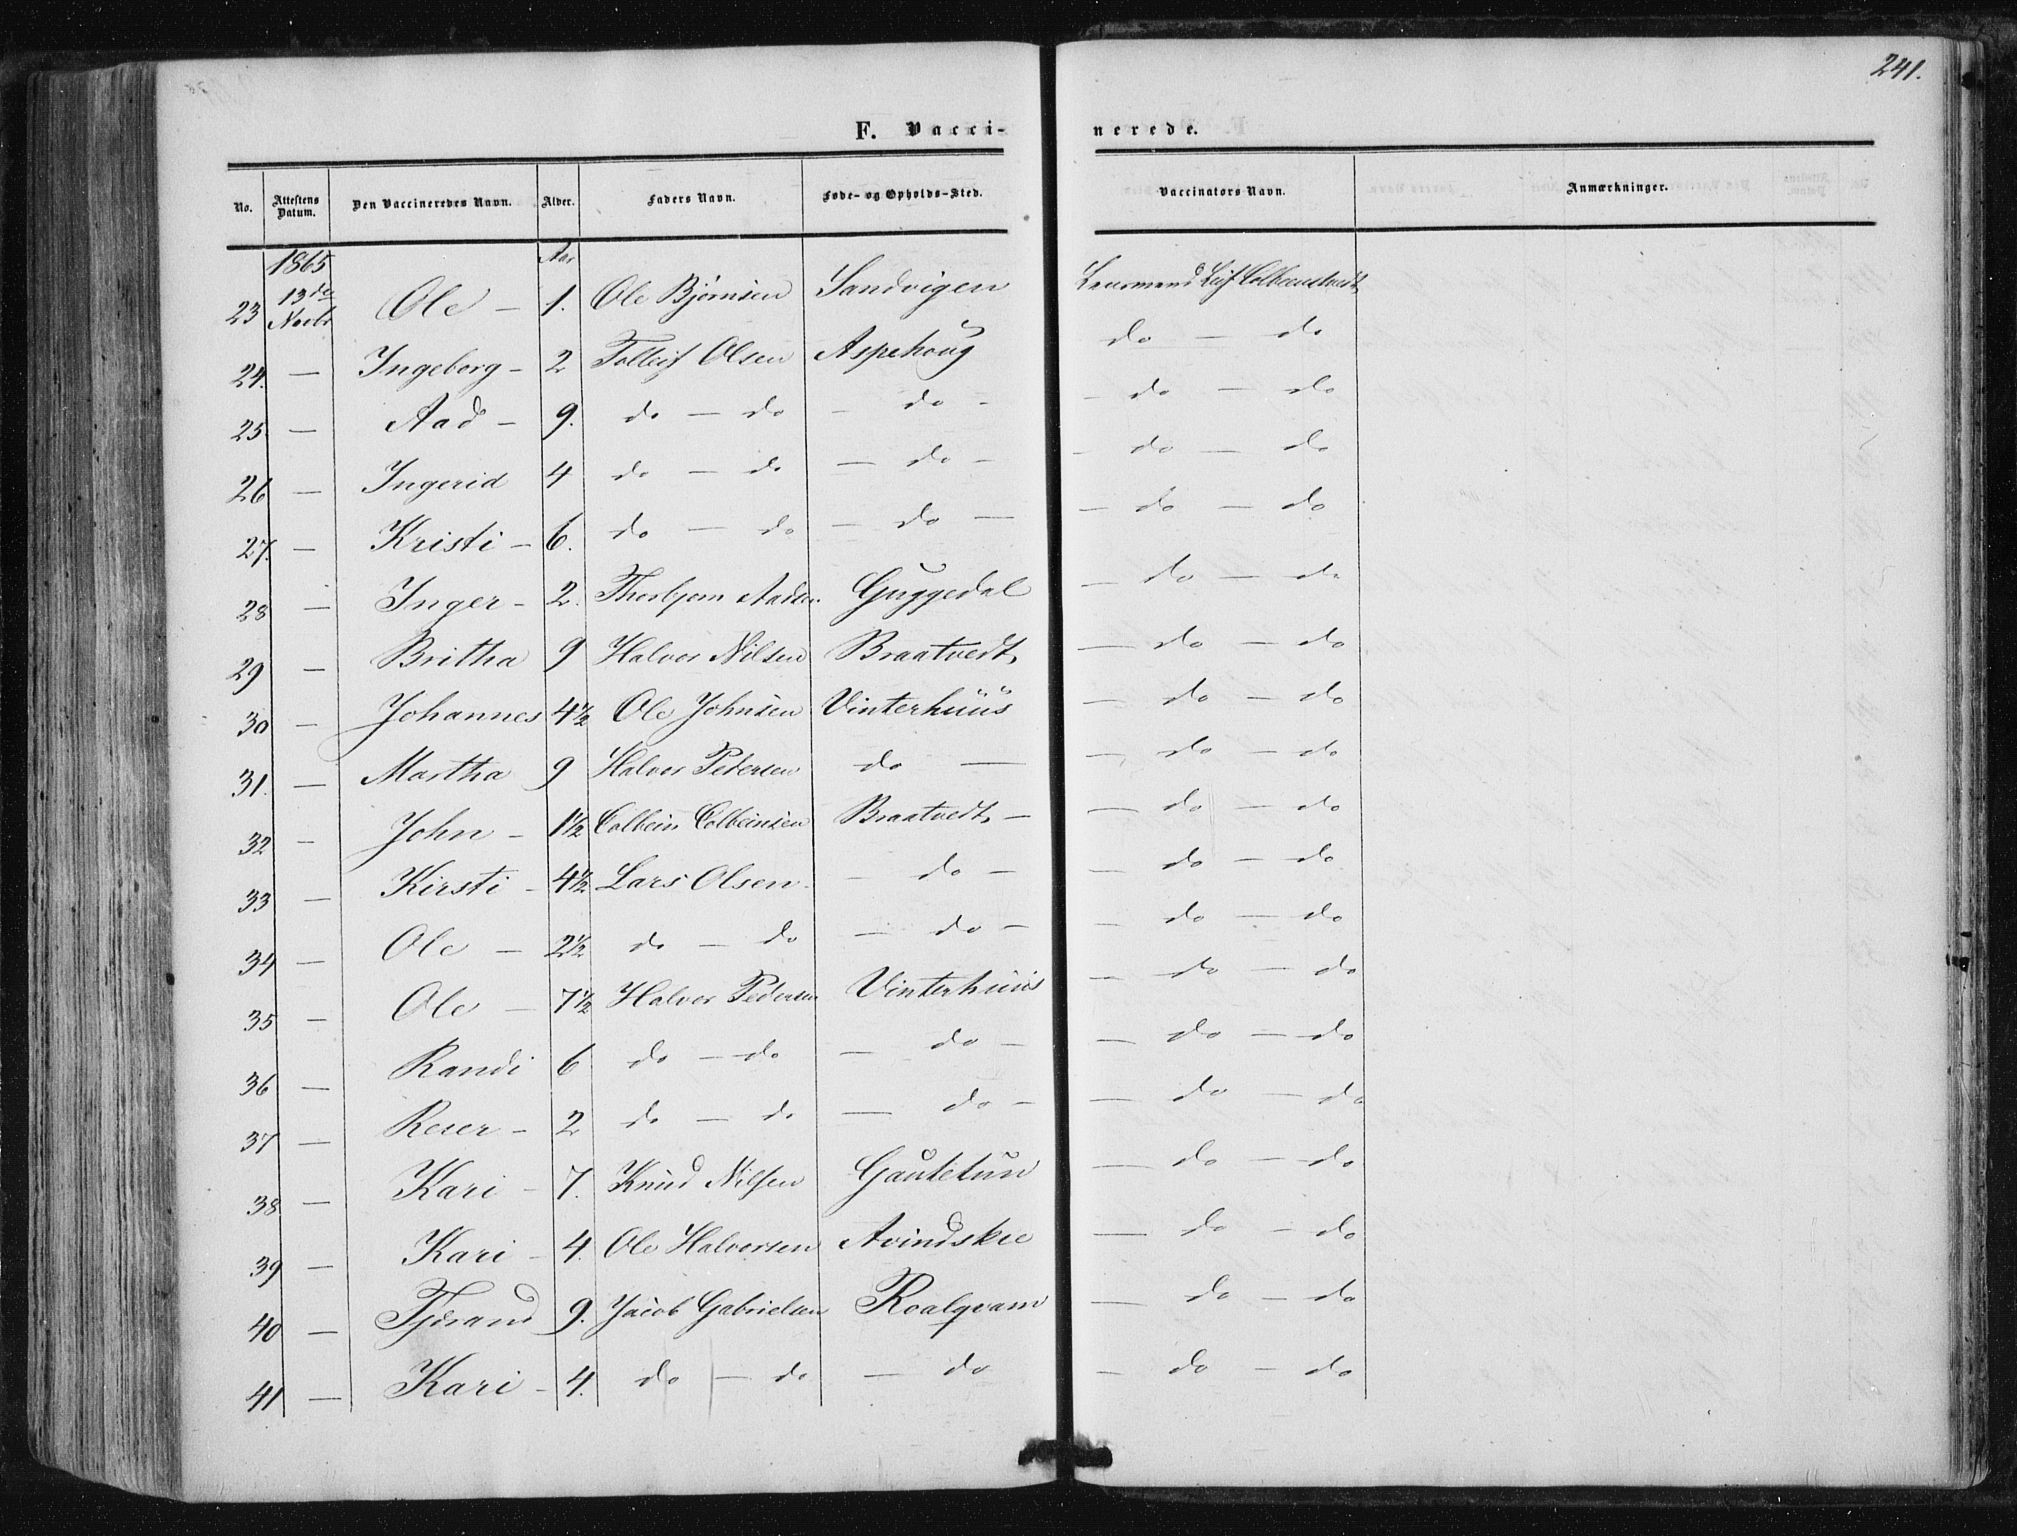 241.
F. Vacci-
nerede.
No. Attestens Datum. Den Vaccineredes Navn. Alder. Faders Navn. Føde- og Opholds-Sted. Vaccinators Navn. Anmærkninger.
1865 Aar
23 13de Novbr Ole - 1. Ole Bjørnsen Sandvigen Lensmand Leif
24. - Ingeborg - 2 Tolleif Olsen Aspehoug do - do
25. - Aad - 9. do - do - do - - do - do
26 - Ingerid 4 do - do - do - - do - do
27. - Kristi - 6. do do - do - - do - do
28 - Inger - 2. Thorbjørn Aadsen Guggedal - do - do
29 - Britha 9 Halvor Nilsen Braatvedt - do - do
30 - Johannes 4½ Ole Johnsen Vinterhuus - do - do
31. - Martha 9 Halvor Pedersen do - - do - do
32 - John - 1½ Colbein Colbeinsen Braatvedt - - do - do
33 - Kirsti - 4½ Lars Olsen - do - - do - do
34 - Ole - 2½ do - do - do - - do - do
35 - Ole - 7½ Halvor Pedersen Vinterhuus - do - do
36 - Randi 6 do - do - do - - do - do
37 - Reier - 2 do - do - do - - do - do
38 - Kari - 7. Knud Nilsen Gautetun - do - do
39 - Kari - 4. Ole Halvorsen Avindskre - do - do
40 - Tjerand 9. Jacob Gabrielsen Roalqvam - do - do
41 - Kari - 4. do - do - do - do - do